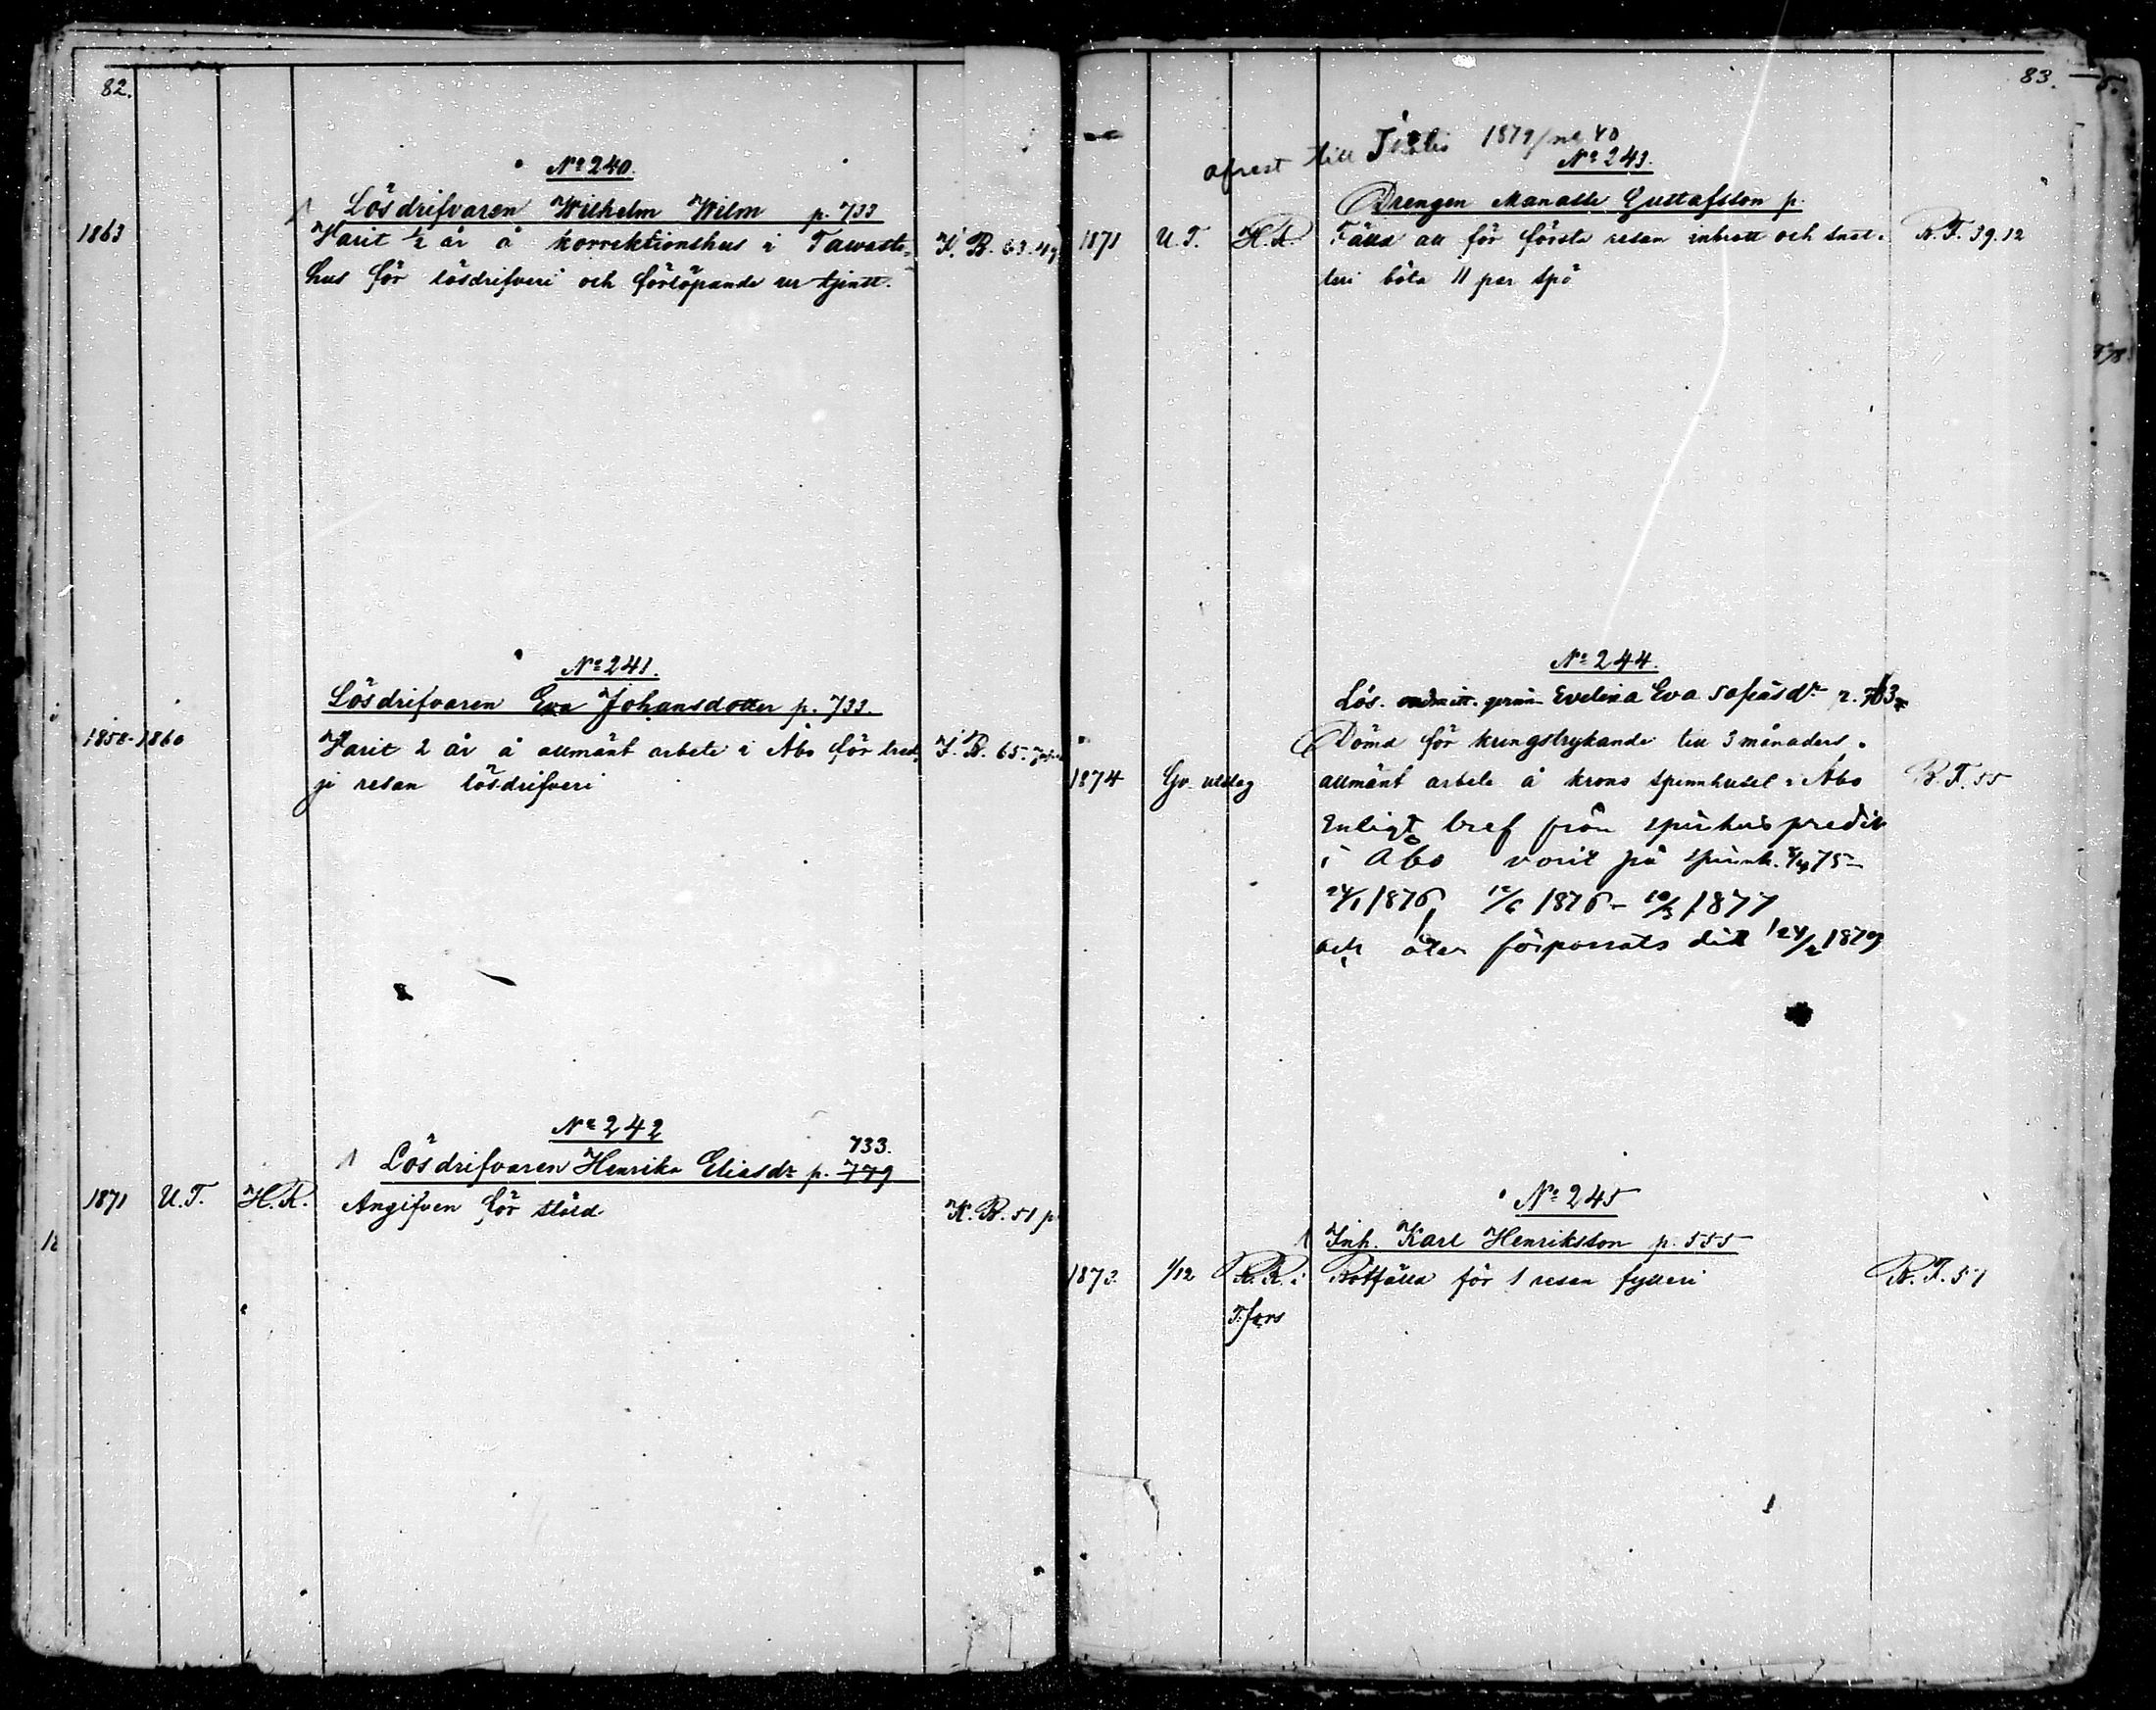 82.
No 240.
Lösdrifvaren Wilhelm Wilm p. 733
1863 Varit ½ år å korrektionshus i Tawaste- K. B. 63.
hus för lösdrifveri och förlöpande ur tjenst.
No 241.
Lösdrifvaren Eva Johansdotter p. 733.
1858-1860 Varit 2 år å allmänt arbete i Åbo för tred- K. B. 65.
je resan lösdrifveri
No 242
733.
Lösdrifvaren Henrika Eliasdr p. 779
1871 U.T. H.R. Angifven för stöld K. B. 51 p
83.
afrest till 1879/
No 243.
Drengen Manasse Gustafsson p.
1871 U.T. H.R. Fälld att för första resan inbrott och snat- R.T. 39.12
teri böta 11 par spö
No 244.
Lös. Evelina Eva
Dömd för kringstrykande till 3 månaders
1874 Gv. utslag allmänt arbete å krono spinnhuset i Åbo R.T. 55
Enligt bref från spinhus predik
i Åbo varit på spinnh. 75-
24/1 1876, 12/6 1876- 10/3 1877
och åter förpassats dit 24/2 1879
No 245
Inh. Karl Henriksson p. 555
1873. 1/12 R.R. i Botfälld för 1 resan fylleri R.T. 51
T:fors